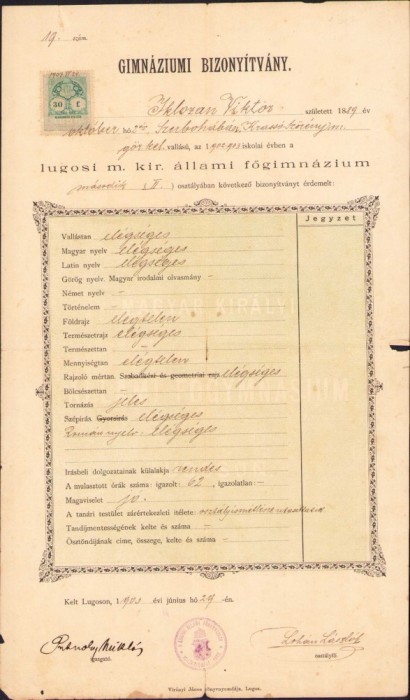 19. szám.
30 f
GIMNÁZIUMI BIZONYÍTVÁNY.
Iklozan Viktor született 1889 év
október hó Szerbohában, Krassó Szörény m.
gör. kel. vallású, az iskolai évben a
lugosi m. kir. állami főgimnázium
második (II.) osztályában következő bizonyítványt érdemelt:
Jegyzet
Vallástan elégséges
Magyar nyelv elégséges
Latin nyelv elégséges
Görög nyelv. Magyar irodalmi olvasmány –
Német nyelv –
Történelem –
Földrajz elegtelen
Természetrajz elégséges
Természettan –
Mennyiségtan elégtelen
Rajzoló mértan. Szabadkézi és geometriai rajz elégséges
Bölcsészettan –
Tornázás jeles
Szépírás. Gyorsírás elégséges
Roman nyelv: elégséges
Irásbeli dolgozatainak külalakja rendes
A mulasztott órák száma: igazolt: 62, igazolatlan: –
Magaviselet jó.
A tanári testület zárértekezleti itélete:
Tandijmentességének kelte és száma –
Ösztöndijának címe, összege, kelte és száma –
Kelt Lugoson, 1903 évi június hó 29-én.
Putnoky Miklós
igazgató.
Lohan László
osztályfő.
Virányi János könyvnyomdája, Lugos.